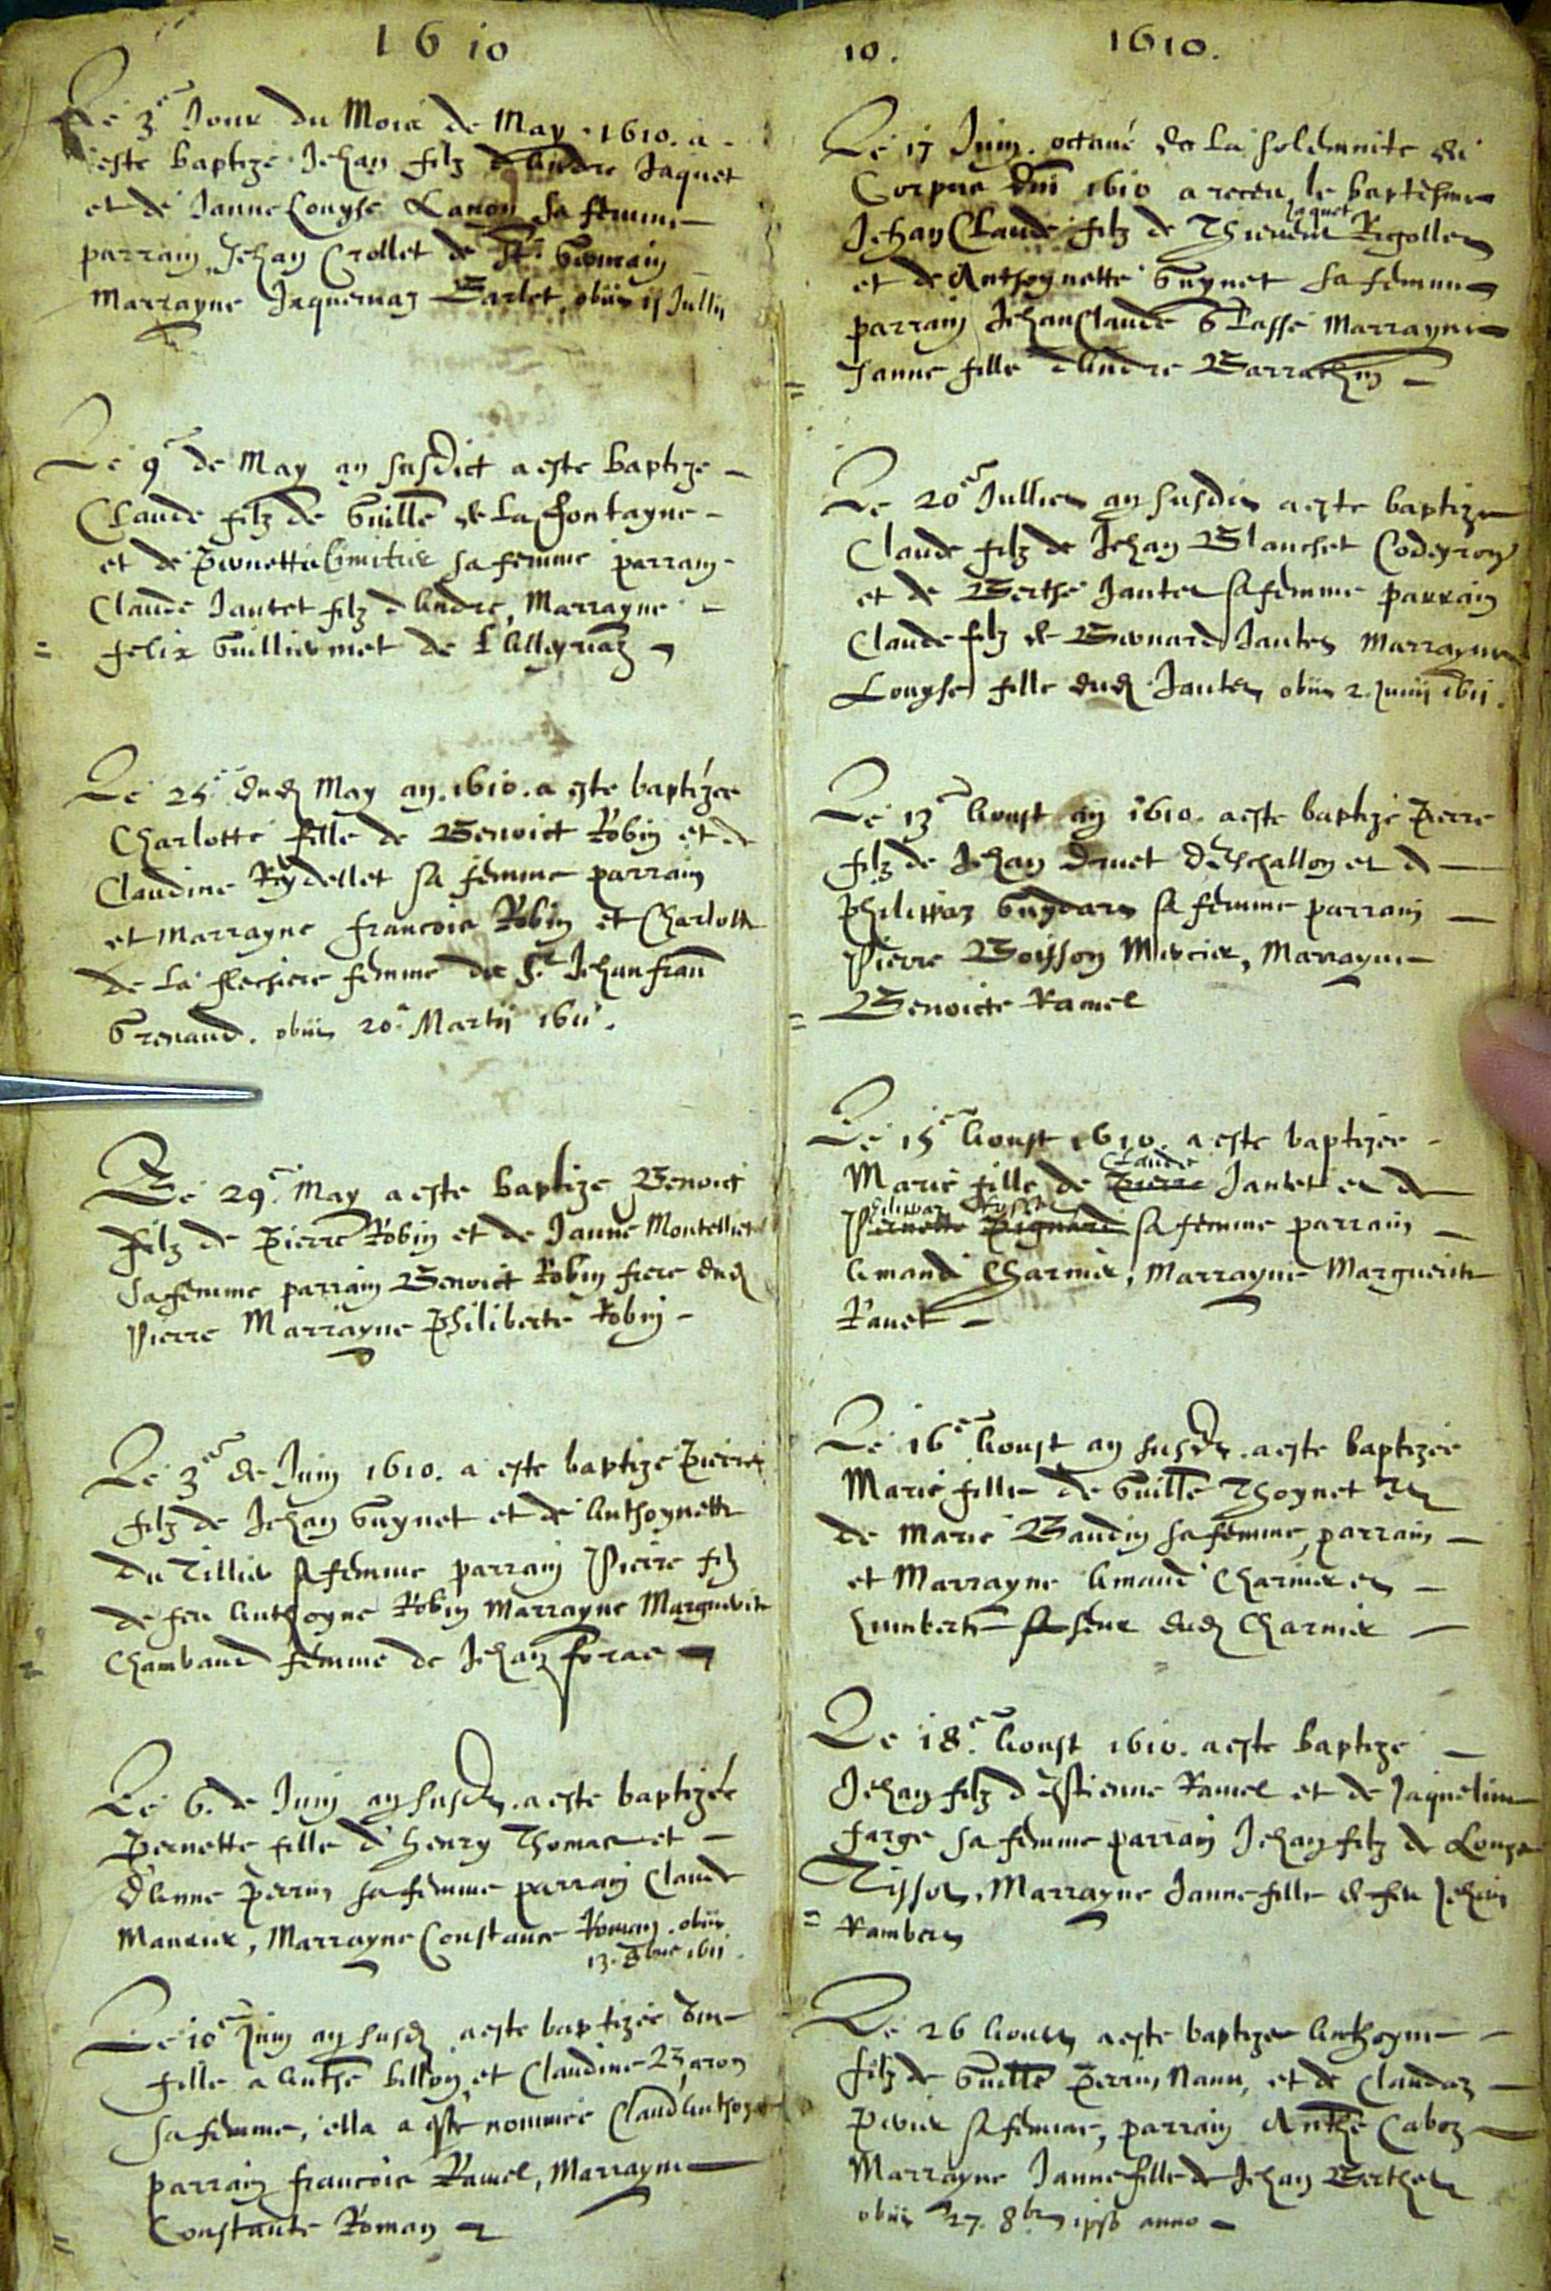 1610
Le 3e Jour du Mois de May. 1610. a
este baptizé Jehan filz d'Andre Jaquet
et de Janne Louyse Lanon sa femme
parrain Jehan Crollet de St Germain
Marrayne Jaquemaz Barlet, obiit 15 Jullij
Le 9e de May an susdict a este baptize
Claude filz de Guille de la Fontayne
et de Pernette sa femme parrain
Claude Jantet filz d'Andre, Marrayne
Felix Guilliermet de L'Alleyriaz
Le 25e dud May an. 1610. a este baptizée
Charlotte fille de Benoict Robin et de
Claudine Reydellet sa femme parrain
et marrayne Francois Robin et Charlotte
de la Flechiere femme de Sr Jehan Fran
Grenaud. obiit 20e Martij 1611.
Le 29e. May a este baptize Benoict
filz de Pierre Robin et de Janne Montelliet
sa femme parrain Benoict Robin frere dud
Pierre Marrayne Philiberte Robin
Le 3e de Juin 1610. a este baptizé Pierre
filz de Jehan Guynet et de Anthoynette
du Tillier sa femme parrain Pierre filz
de feu Anthoyne Robin Marrayne Marguerite
Chambaud femme de Jehan Foras
Le 6. de Juin an susd. a este baptizée
Pernette fille d'Henry Thomas et
d'Anne Perrin sa femme parrain Claude
Maurier, Marrayne Constance Roman. obiit
13. 8bris 1611.
Le 10e Juin an susd a este baptizée une
fille a Anthe Billion et Claudine Baron
sa femme, ella a este nommée Claud'Anthoyne
parrain Francois Ramel, Marrayne
Constante Roman
10. 1610.
Le 17 Juin. octave de la solemnite de
Corpus Dni 1610 a receu le baptesme
Jaquet
Jehan Claude filz de Thievent Rigollet
et de Anthoynette Guynet sa femme
parrain Jehan Claude Glasse Marrayne
Janne fille d'Andre Barrachin
Le 20e Julliet an susdit a este baptize
Claude filz de Jehan Blanchet Codeyron
et de Berthe Jantet sa femme parrain
Claude filz de Bernard Jantet Marrayne
Louyse fille dud Jantet obiit 2. Junij 1611.
Le 13e Aoust an 1610. a este baptizé Pierre
filz de Jehan Druet d'Eschallon et de
Philippaz Guydard sa femme parrain
Pierre Boisson Mercier, Marrayne
Benoicte Ramel
Le 15e Aoust 1610. a este baptizée
Claude
Marie fille de Pierre Jantet et de
Philippaz
Pernette Pignard sa femme parrain
Amand Charnier, Marrayne Marguerite
Ravet
Le 16e Aoust an susdt. a este baptizée
Marie fille de Guille Thoynet et
de Marie Baudin sa femme, parrain
et Marrayne Amand Charnier et
Humberte sa seur dud Charnier
Le 18e. Aoust 1610. a este baptizé
Jehan filz d'Estienne Ramel et de Jaqueline
Farge sa femme parrain Jehan filz de Louys
Tissot, Marrayne Janne fille de feu Jehan
Rambert
Le 26 Aoust a este baptize Anthoyne
filz de Guille Perrin Nanu, et de Claudaz
Perier sa femme, parrain Anthe Caboz
Marrayne Janne fille de Jehan Berthet
obiit 27. 8bris ipso anno